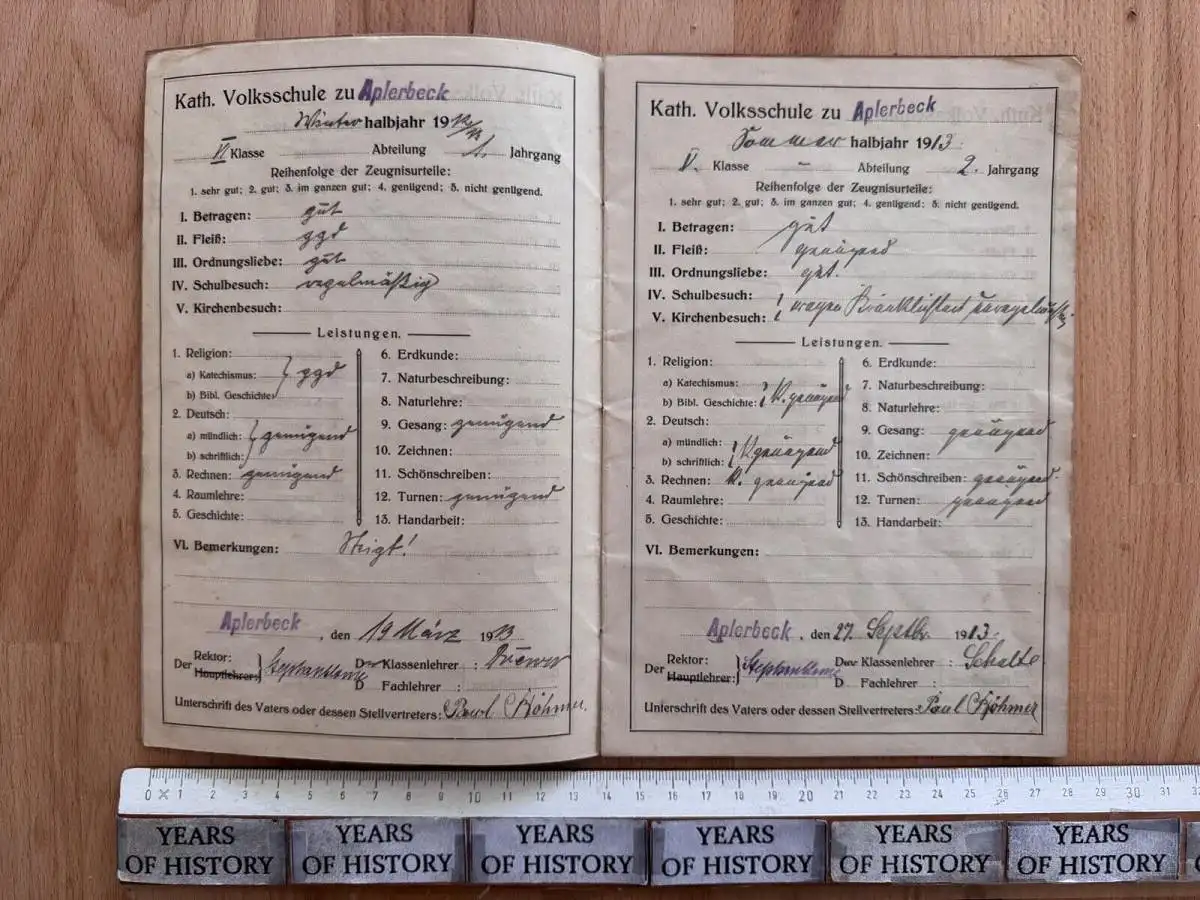 Kath. Volksschule zu Aplerbeck
Winter halbjahr 1912/13
VI Klasse Abteilung 1. Jahrgang
Reihenfolge der Zeugnisurteile:
1. sehr gut; 2. gut; 3. im ganzen gut; 4. genügend; 5. nicht genügend.
I. Betragen: gut
II. Fleiß: ggd
III. Ordnungsliebe: gut
IV. Schulbesuch: regelmäßig
V. Kirchenbesuch:
Leistungen.
1. Religion:
a) Katechismus: ggd
b) Bibl. Geschichte:
2. Deutsch:
a) mündlich: genügend
b) schriftlich:
3. Rechnen: genügend
4. Raumlehre:
5. Geschichte:
6. Erdkunde:
7. Naturbeschreibung:
8. Naturlehre:
9. Gesang: genügend
10. Zeichnen:
11. Schönschreiben:
12. Turnen: genügend
13. Handarbeit:
VI. Bemerkungen: Steigt!
Aplerbeck, den 19 März 1913
Rektor:
Der Hauptlehrer:
Der Klassenlehrer:
D Fachlehrer:
Unterschrift des Vaters oder dessen Stellvertreters: Paul Böhmer
Kath. Volksschule zu Aplerbeck
Sommer halbjahr 1913.
V. Klasse - Abteilung 2. Jahrgang
Reihenfolge der Zeugnisurteile:
1. sehr gut; 2. gut; 3. im ganzen gut; 4. genügend; 5. nicht genügend.
I. Betragen: gut
II. Fleiß: genügend
III. Ordnungsliebe: gut.
IV. Schulbesuch:
V. Kirchenbesuch: wegen Kränklichkeit unregelmäßig
Leistungen.
1. Religion:
a) Katechismus:
b) Bibl. Geschichte: K. genügend
2. Deutsch:
a) mündlich:
b) schriftlich: K. genügend
3. Rechnen: K. genügend
4. Raumlehre:
5. Geschichte:
6. Erdkunde:
7. Naturbeschreibung:
8. Naturlehre:
9. Gesang: genügend
10. Zeichnen:
11. Schönschreiben: genügend.
12. Turnen: genügend
13. Handarbeit:
VI. Bemerkungen:
Aplerbeck, den 27. Septbr. 1913.
Rektor:
Der Hauptlehrer:
Der Klassenlehrer: Schulte
D Fachlehrer:
Unterschrift des Vaters oder dessen Stellvertreters: Paul Böhmer
0 1 2 3 4 5 6 7 8 9 10 11 12 13 14 15 16 17 18 19 20 21 22 23 24 25 26 27 28 29 30 31 32
YEARS OF HISTORY YEARS OF HISTORY YEARS OF HISTORY YEARS OF HISTORY YEARS OF HISTORY YEARS OF HISTORY